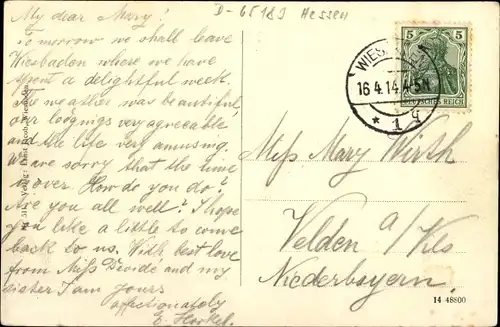 D-65183 Hessen
My dear Mary!
Tomorrow we shall leave
Wiesbaden where we have
spent a delightful week.
The weather was beautiful,
our lodgings very agreeable,
and the life very amusing.
We are sorry that the time
is over. How do you do?
Are you all well? I hope
you like a little to come
back to us. With best love
from Miss and my
sister I am yours
affectionately
E.
5 5
DEUTSCHES REICH
WIESBADEN
16.4.14.4-5N
* 1 q
Miss Mary Wirth
Velden a/Vils
Niederbayern.
14 48800